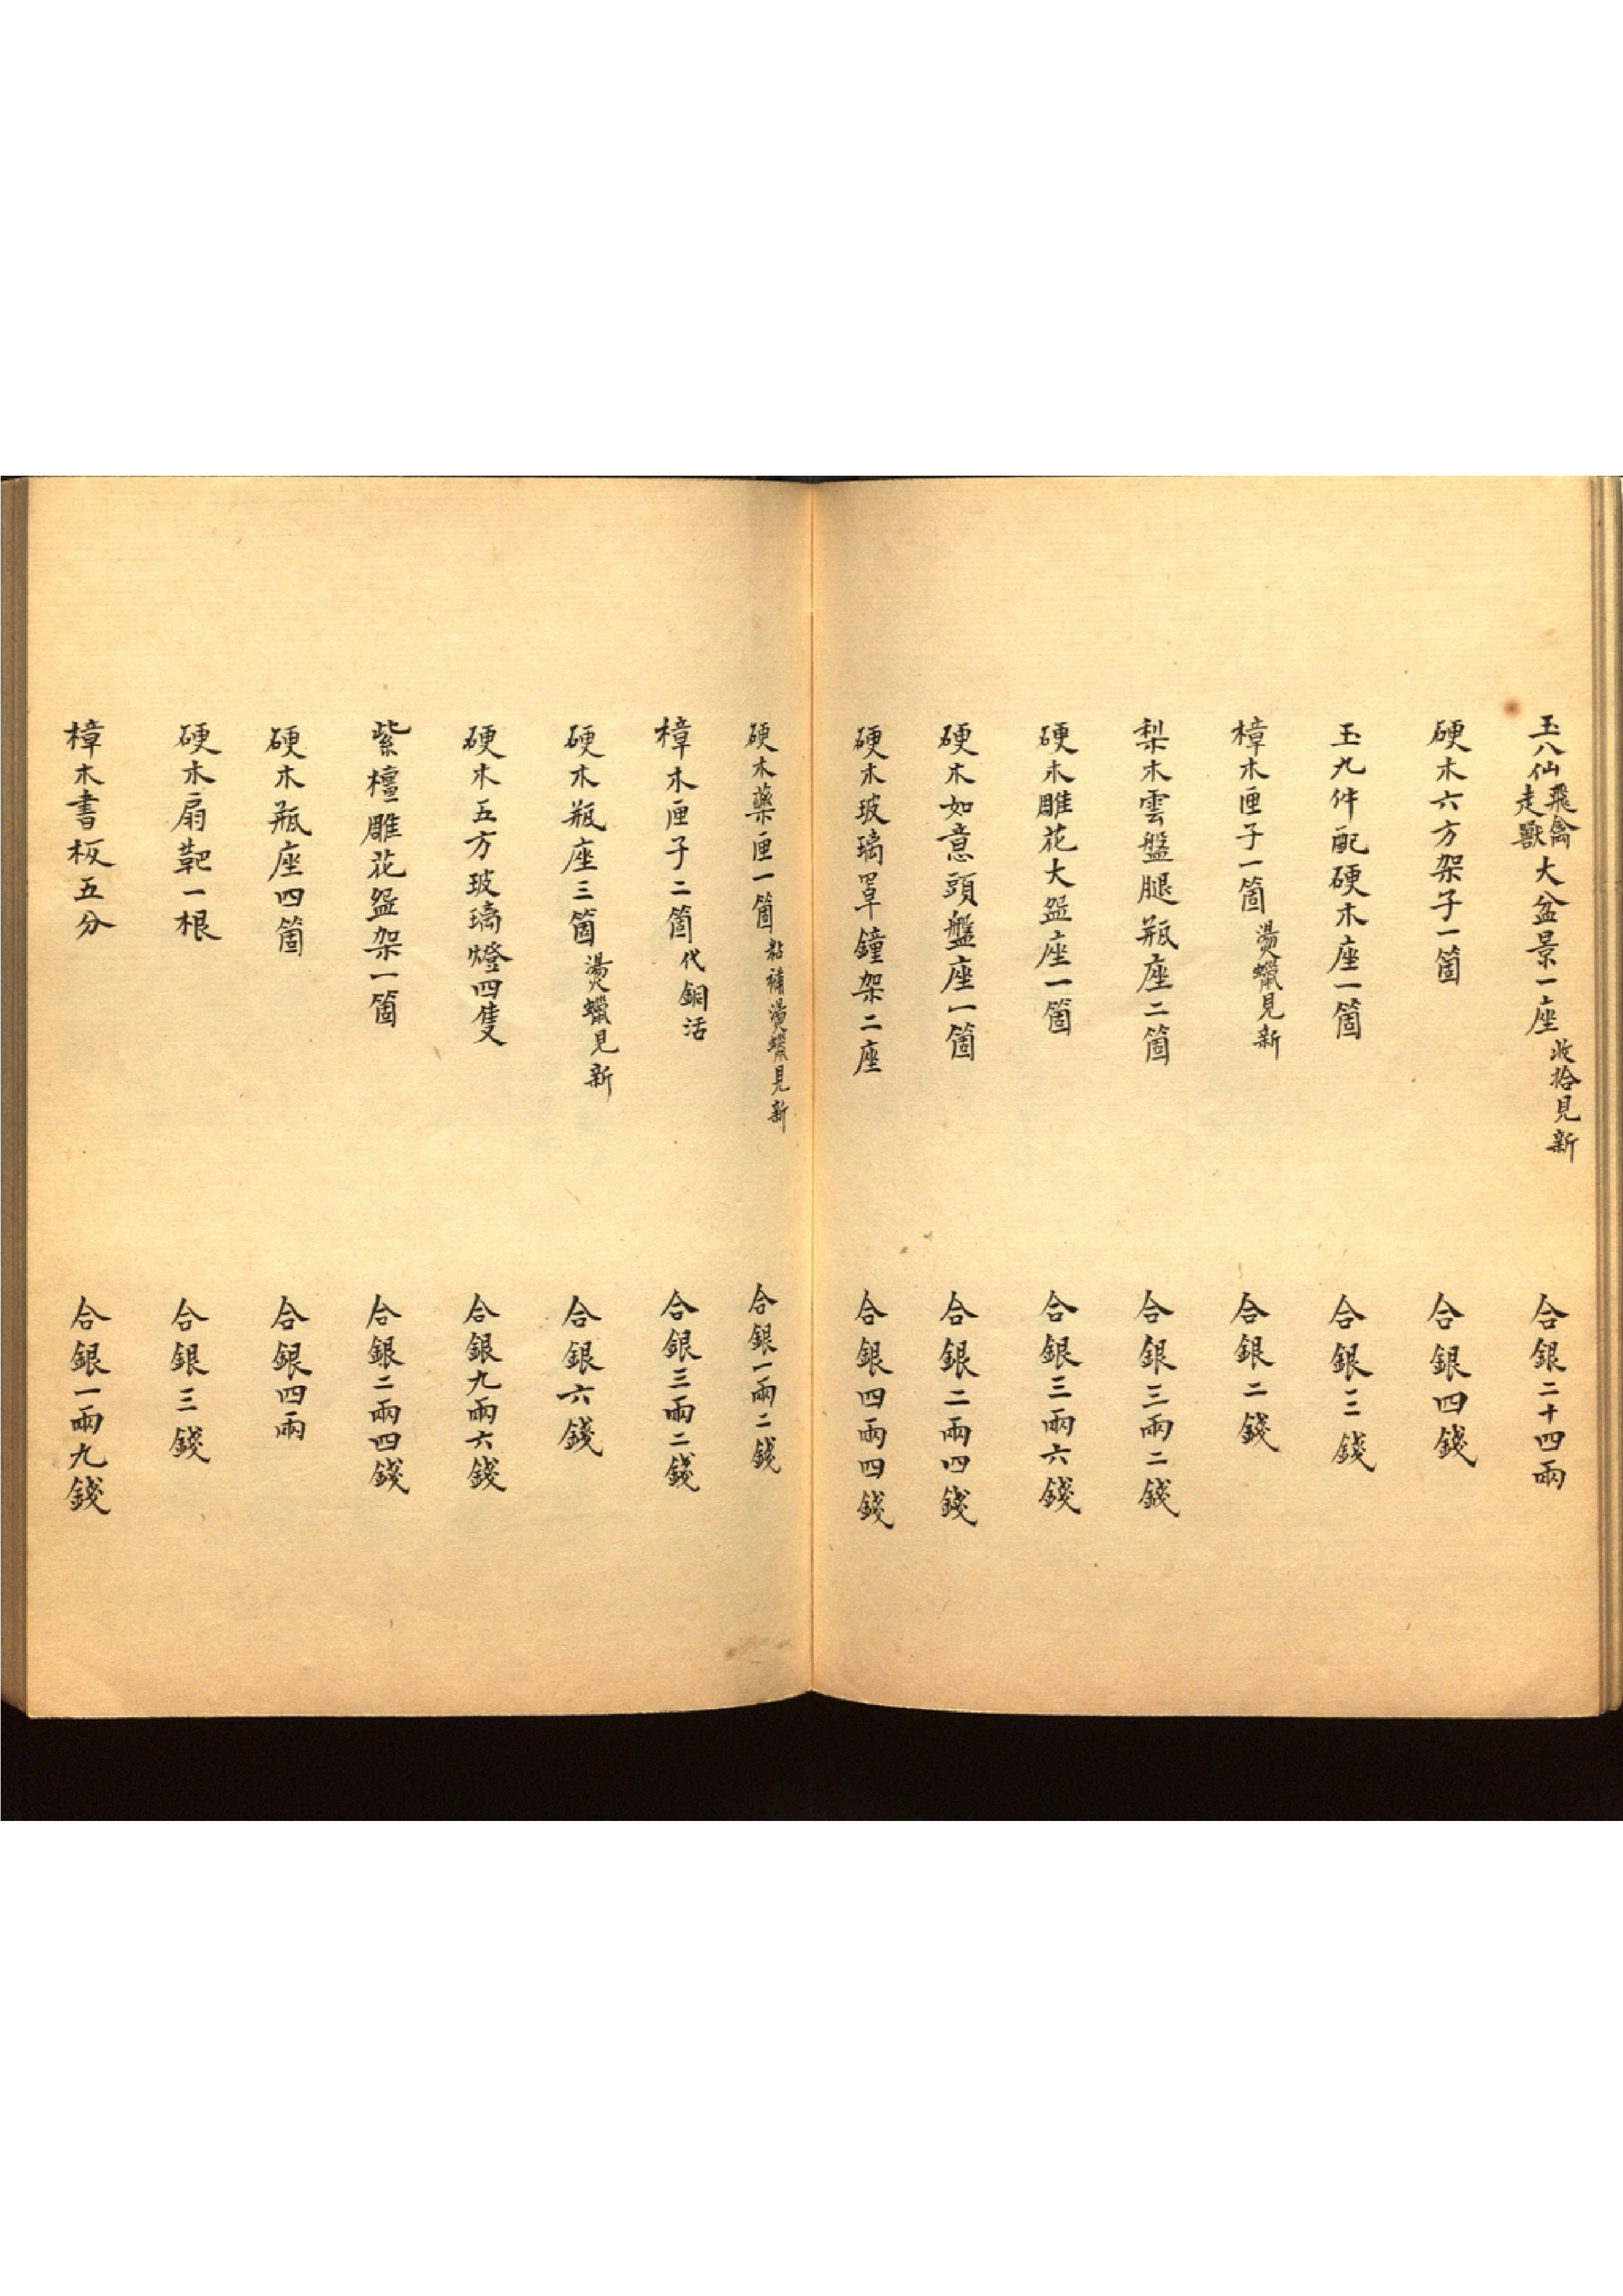 玉八仙飛禽走獸大盆景一座收拾見新 合銀二十四兩
硬木六方架子一箇 合銀四錢
玉九件配硬木座一箇 合銀三錢
樟木匣子一箇燙蠟見新 合銀二錢
梨木雲盤腿瓶座二箇 合銀三兩二錢
硬木雕花大盆座一箇 合銀三兩六錢
硬木如意頭盤座一箇 合銀二兩四錢
硬木玻璃罩鐘架二座 合銀四兩四錢
硬木藥匣一箇粘補燙蠟見新 合銀一兩二錢
樟木匣子二箇代銅活 合銀三兩二錢
硬木瓶座三箇燙蠟見新 合銀六錢
硬木五方玻璃燈四隻 合銀九兩六錢
紫檀雕花盆架一箇 合銀二兩四錢
硬木瓶座四箇 合銀四兩
硬木扇靶一根 合銀三錢
樟木書板五分 合銀一兩九錢